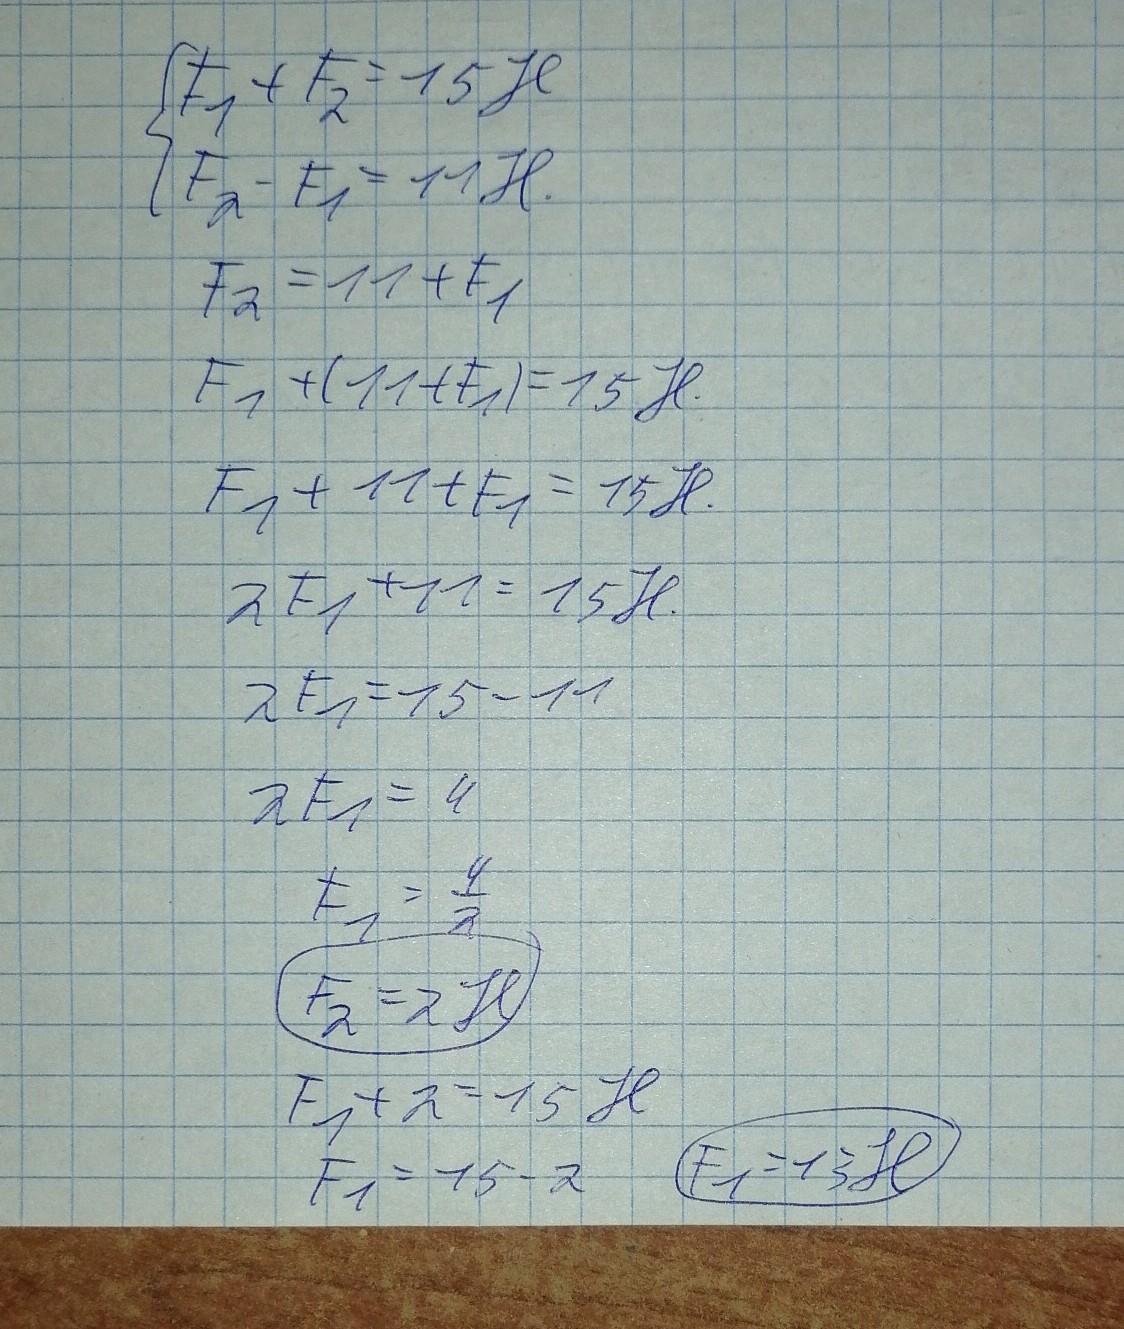 F₁ + F₂ = 15 Н
F₂ - F₁ = 11 Н.
F₂ = 11 + F₁
F₁ + (11 + F₁) = 15 Н.
F₁ + 11 + F₁ = 15 Н.
2F₁ + 11 = 15 Н.
2F₁ = 15 - 11
2F₁ = 4
F₁ = 4/2
F₂ = 2 Н
F₁ + 2 = 15 Н
F₁ = 15 - 2 F₁ = 13 Н